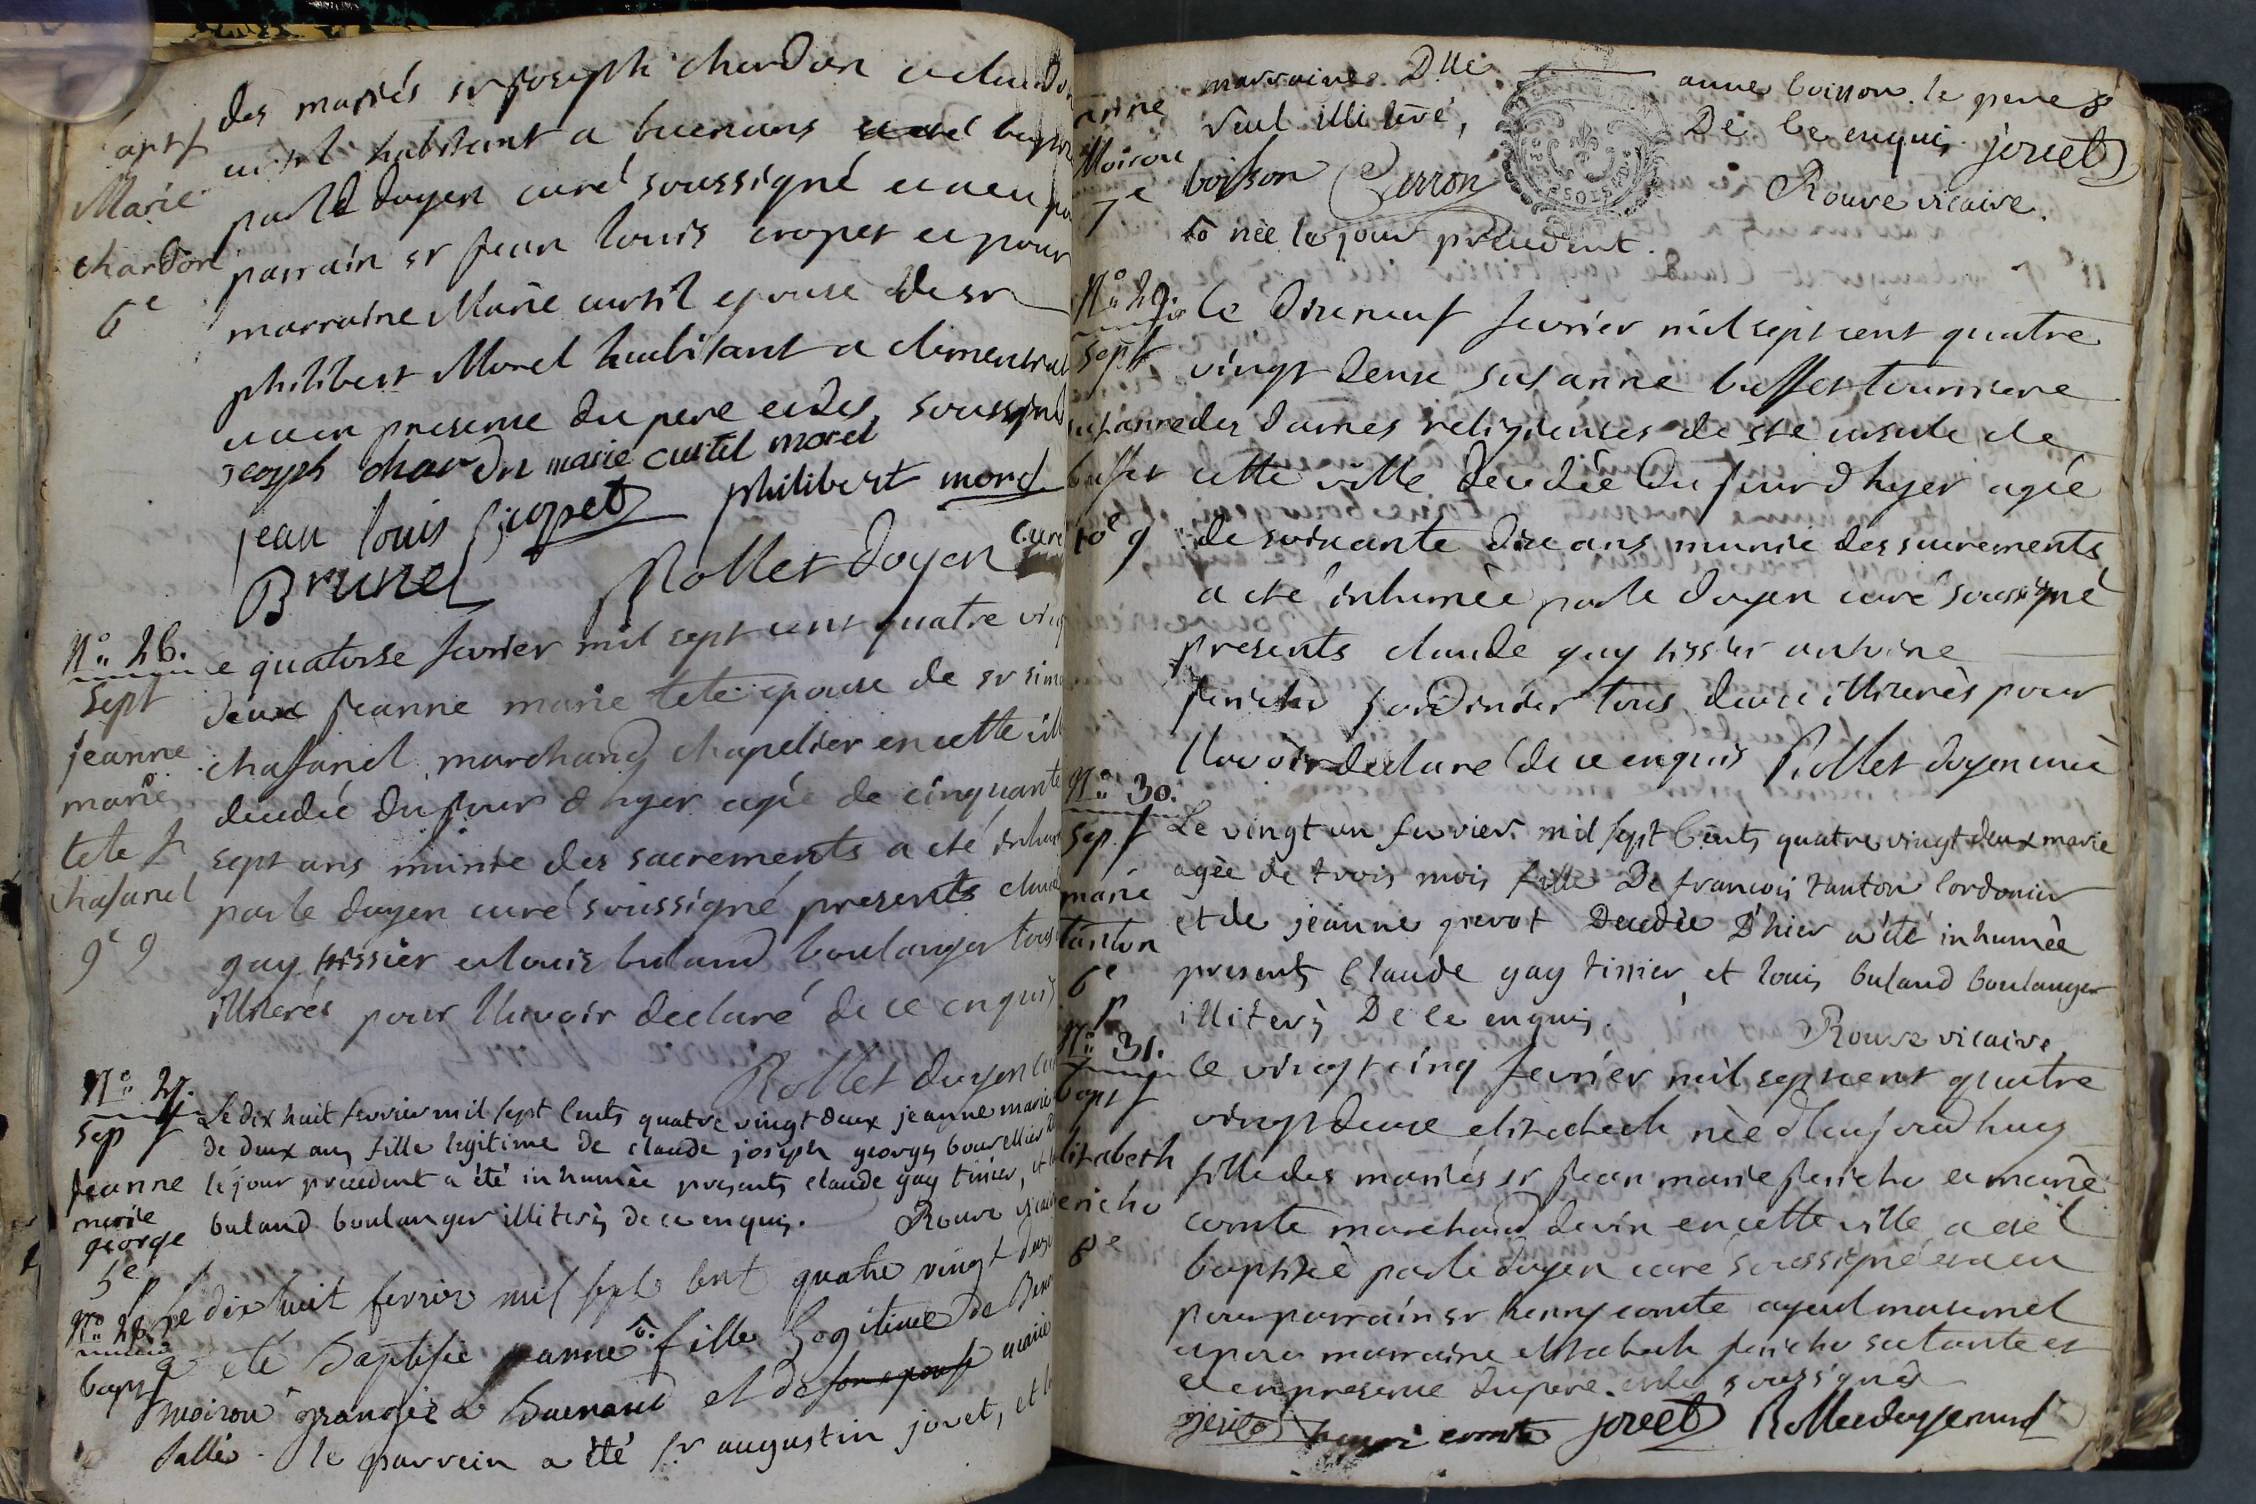 bapt
Marie
chardon
6e
des mariés sr joseph chardon et claudi
curtil habitant a buenans baptis
par le doyen curé soussigné a eu po
parrain sr jean louis cropet et pour
marraine Marie curtil epouse de sr
philibert Morel habitant a
et en presence du pere et des soussignés
joseph chardon marie curtil morel
jean louis cropet philibert morel
Brunel Rollet doyen curé
No. 26.
sept
jeanne
marie
tete f
chafanel
9e 9
le quatorse fevrier mil sept cent quatre vingt
deux jeanne marie tete epouse de sr simo
chafanel marchand chapelier en cette ville
decedée du jour d hyer agée de cinquante
sept ans munie des sacrements a eté inhu
par le doyen curé soussigné presents claude
gay tissier et louis buland boulanger tous
illiterés pour l'havoir declaré de ce enquis
Rollet doyen cu
No. 27.
sep f
jeanne
marie
george
5e
Le dix huit fevrier mil sept cents quatre vingt deux jeanne marie
de deux ans fille legitime de claude joseph georges bourellier
le jour precedent a été inhumée presents claude gay tissier, et l
buland boulanger illiterés de ce enquis. Rouve vicaire
No. 28.
bapt
Le dix huit fevrier mil sept cent quatre vingt deux
a ete baptisée anne fille Legitime de Ben
moirou granger a buenand et de son epouse marie
sallé. le parrein a été sr augustin jovet, et l
anne
Moirou
7e
marraine Dlle anne boisson. le pere
seul illiteré, De ce enquis. jovet
boisson Carron Rouve vicaire.
née le jour precedent.
No. 29.
sept
susanne
buffet
10e 9
le dix neuf fevrier mil sept cent quatre
vingt deux susanne buffet touriere
des dames religieuses de ste ursule de
cette ville decedée du jour d hyer agée
de soixante dix ans munie des sacrements
a eté inhumée par le doyen curé soussigné
presents claude gay tissier antoine
jericho jardinier tous deux illiterés pour
l'lavoir declaré de ce enquis Rollet doyen curé
No. 30.
sep. f
marie
tanton
6e
p
Le vingt un fevrier mil sept Cents quatre vingt deux marie
agée de trois mois fille De francois tanton Cordonier
et de jeanne grevot Decedée D'hier a été inhumée
presents Claude gay tissier et louis buland boulanger
illiterés De Ce enquis. Rouve vicaire
No. 31.
bapt f
elisabeth
jericho
8e
le vingt cinq fevrier mil sept cent quatre
vingt deux elisabeth née d'aujourd huy
fille des mariés sr jean marie jericho et marie
comte marchand de vin en cette ville a eté
baptisée par le doyen curé soussigné et a eu
pour parrain sr henry comte ayeul maternel
et pour marraine elisabeth jericho sa tante et
et en presence du pere et des soussignés
jericho henri comte jovet Rollet doyen curé